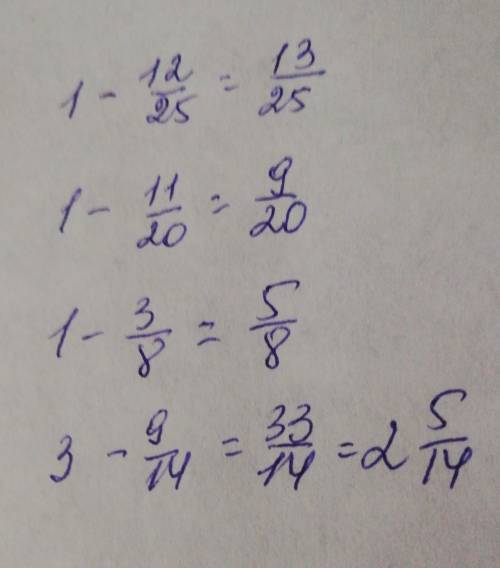 1 - 12/25 = 13/25
1 - 11/20 = 9/20
1 - 3/8 = 5/8
3 - 9/14 = 33/14 = 2 5/14